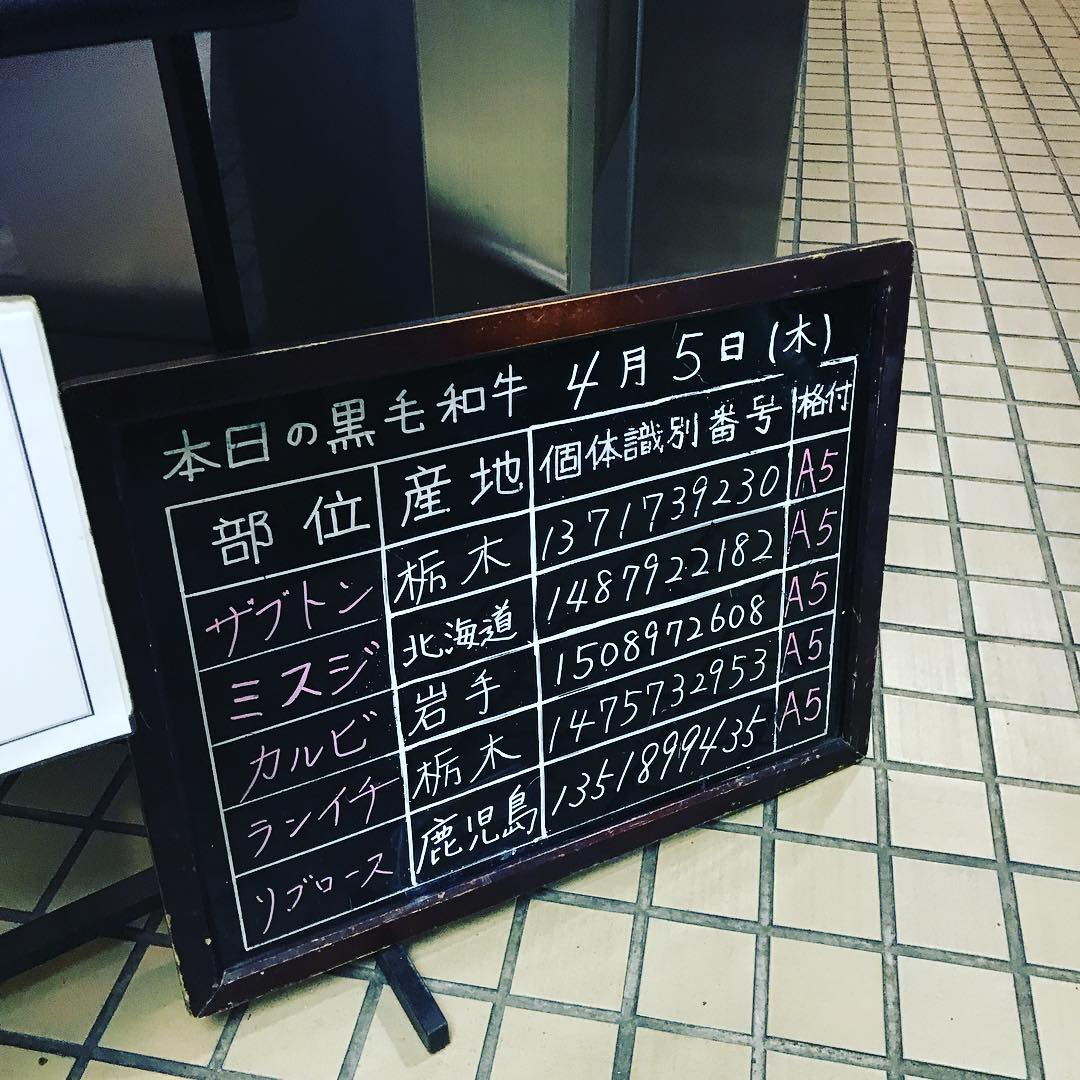 本日の黒毛和牛 4月5日(木)
部位 産地 個体識別番号 格付
ザブトン 栃木 1371739230 A5
ミスジ 北海道 1487922182 A5
カルビ 岩手 1508972608 A5
ランイチ 栃木 1475732953 A5
リブロース 鹿児島 1351899435 A5